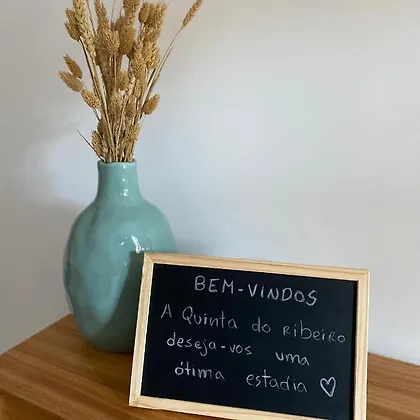 BEM-VINDOS
A Quinta do Ribeiro
deseja-vos uma
ótima estadia ♡